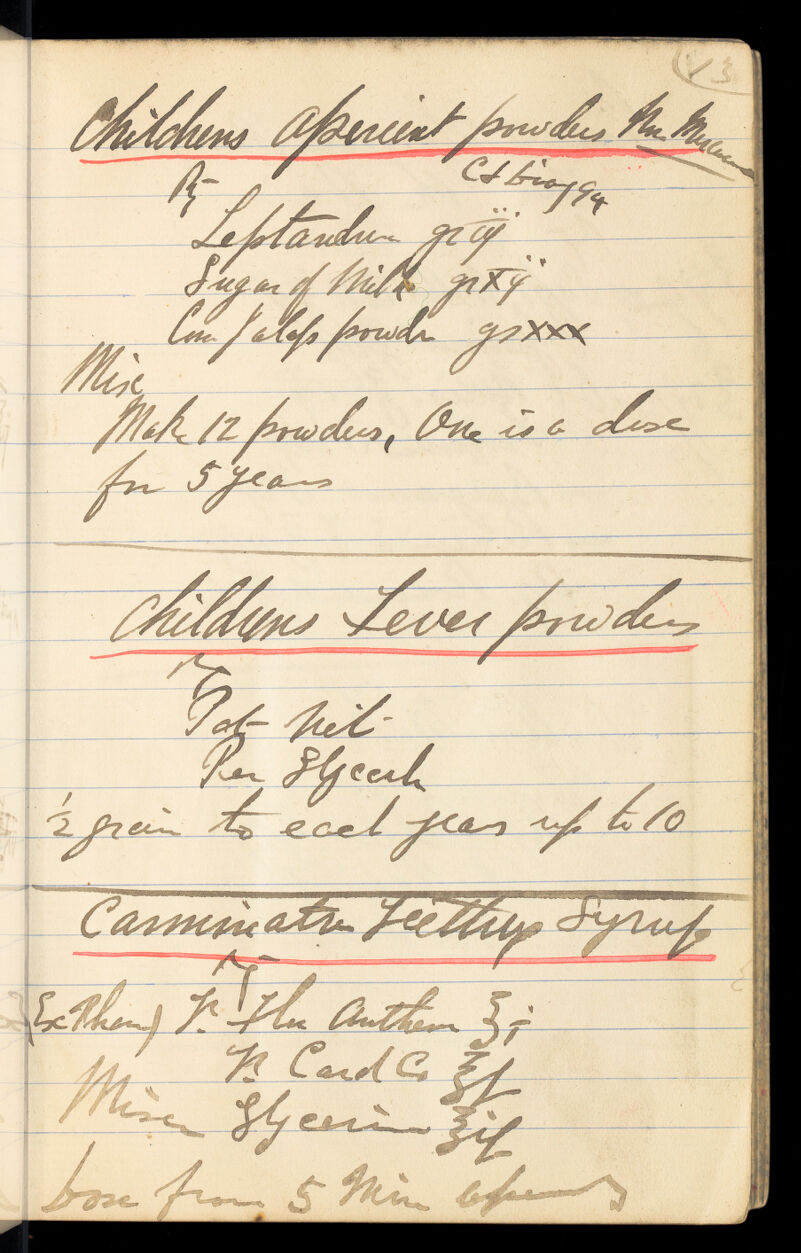 3
Childrens Aperient powders Mr
℞
Leptandrin gr iij
Sugar of Milk gr xij
Com Jalap powder grs xxx
Misc
Make 12 powders, One is a dose
for 5 years
Childrens Fever powders
℞
Pot Nit
½ grain to each year up to 10
Carminative Teething Syrup
℞
Flu Anthem ℥j
Card Co
Misce Glycerine
Dose from 5 Min upwards